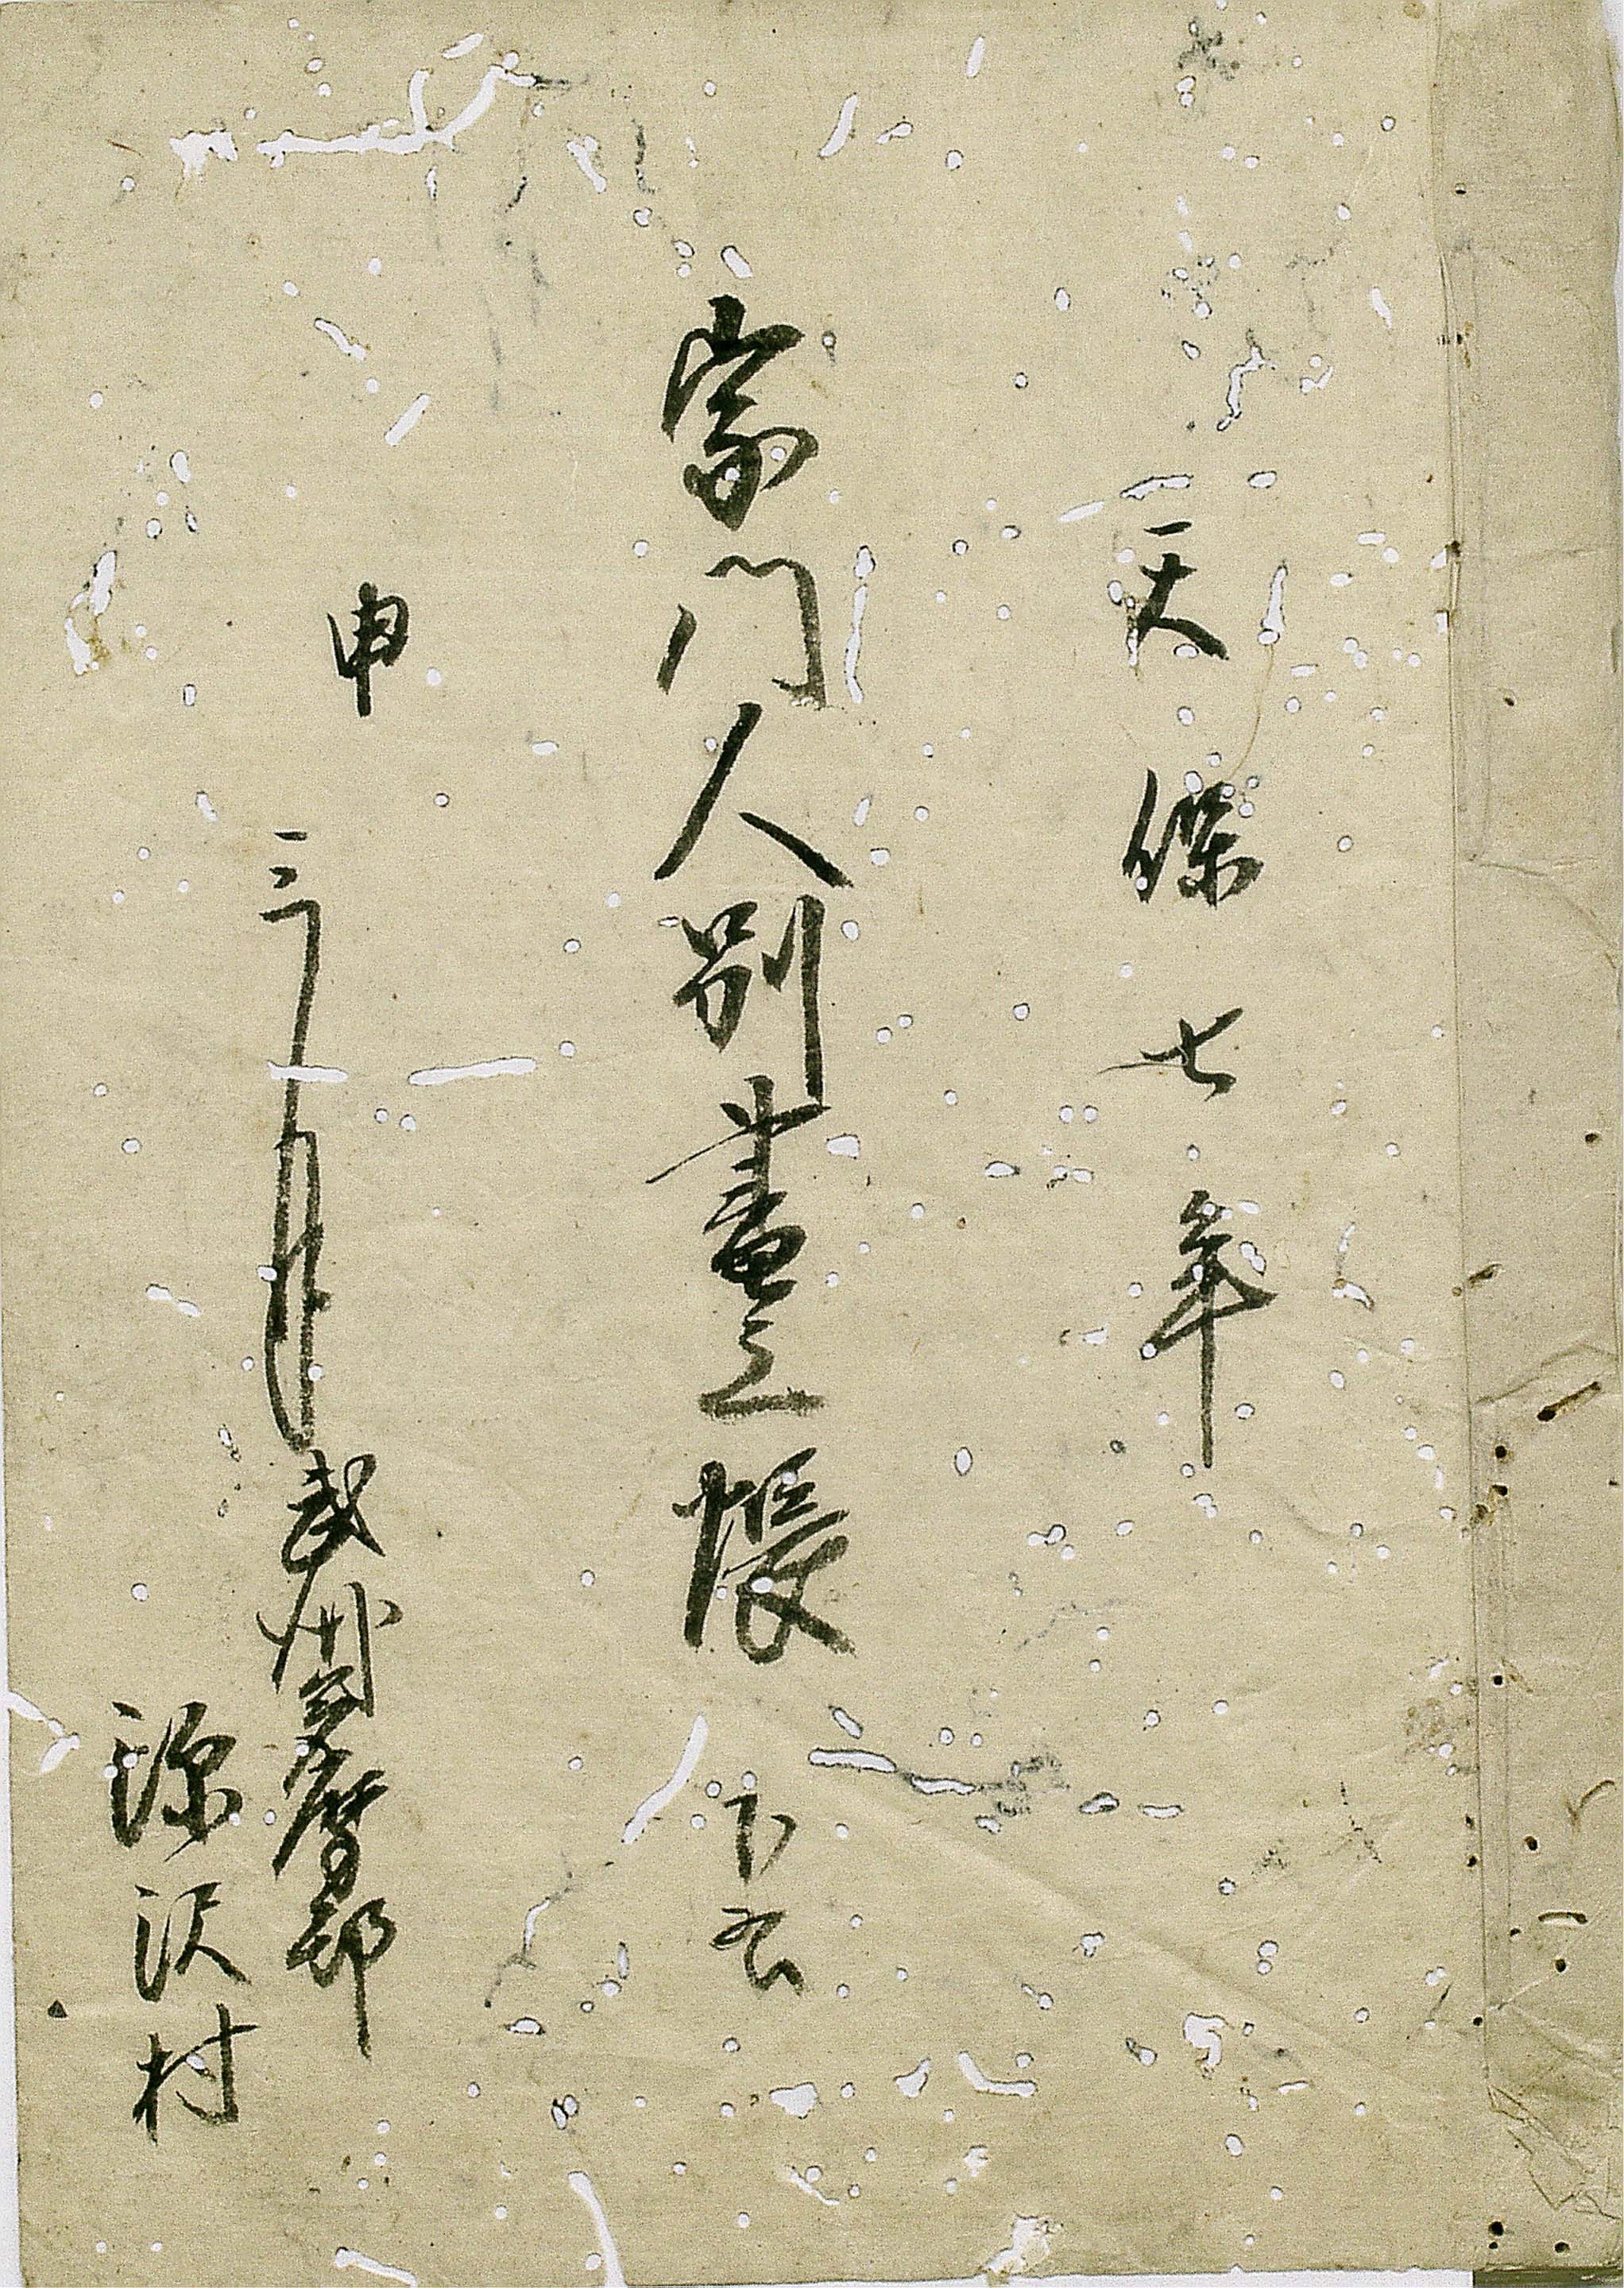 天保七年
宗門人別書上帳 下書
申
三月 武州多摩郡
深沢村